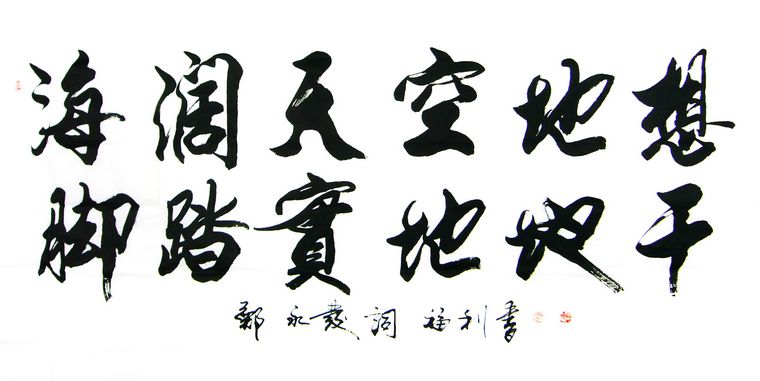 海阔天空地想
脚踏實地地干
鄭永發詞 福利書